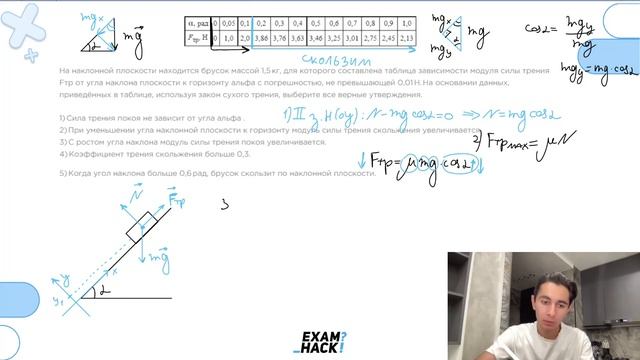 mgₓ
mg
α
α, рад 0 0,05 0,1 0,2 0,3 0,4 0,5 0,6 0,7 0,8 0,9 1,0
Fтр, Н 0 1,0 2,0 3,86 3,76 3,63 3,46 3,25 3,01 2,75 2,45 2,13
скользим
mgₓ
α
mgy
mg
cosα = mgy / mg
mgy = mg·cosα
На наклонной плоскости находится брусок массой 1,5 кг, для которого составлена таблица зависимости модуля силы трения
Fтр от угла наклона плоскости к горизонту альфа с погрешностью, не превышающей 0,01 Н. На основании данных,
приведённых в таблице, используя закон сухого трения, выберите все верные утверждения.
1) Сила трения покоя не зависит от угла альфа .
1) II з.Н(оу): N - mg cosα = 0 ⇒ N = mg cosα
2) При уменьшении угла наклонной плоскости к горизонту модуль силы трения скольжения увеличивается.
2) Fтр max = μN
3) С ростом угла наклона модуль силы трения покоя увеличивается.
4) Коэффициент трения скольжения больше 0,3.
↓ Fтр = μ mg · cosα ↓
5) Когда угол наклона больше 0,6 рад, брусок скользит по наклонной плоскости.
N
Fтр
mg
y
x
y₁
α
EXAM?
_HACK!